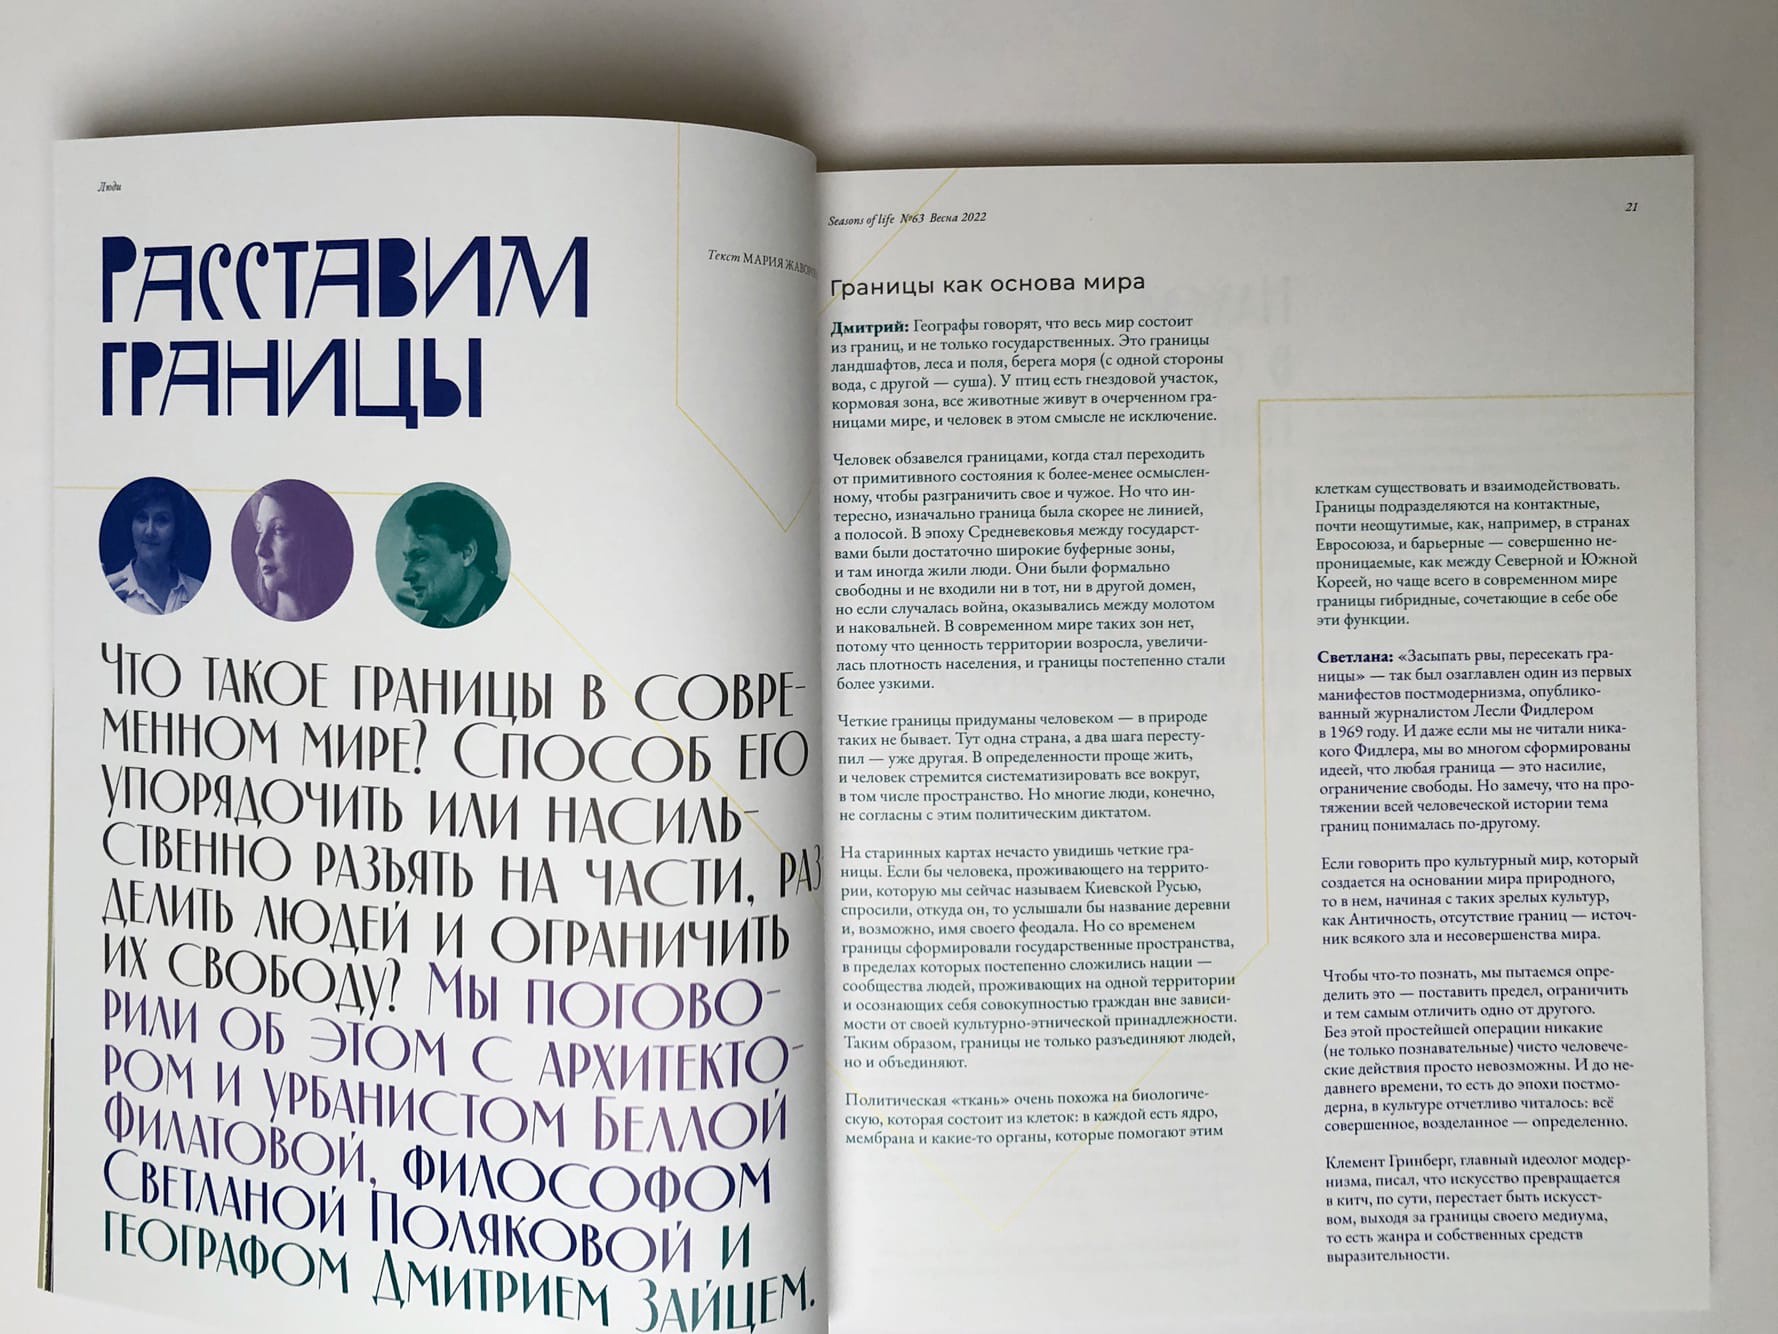 Люди
РАССТАВИМ
ГРАНИЦЫ
Текст МАРИЯ
ЧТО ТАКОЕ ГРАНИЦЫ В СОВРЕ-
МЕННОМ МИРЕ? СПОСОБ ЕГО
УПОРЯДОЧИТЬ ИЛИ НАСИЛЬ-
СТВЕННО РАЗЪЯТЬ НА ЧАСТИ, РАЗ
ДЕЛИТЬ ЛЮДЕЙ И ОГРАНИЧИТЬ
ИХ СВОБОДУ? МЫ ПОГОВО-
РИЛИ ОБ ЭТОМ С АРХИТЕКТО-
РОМ И УРБАНИСТОМ БЕЛЛОЙ
ФИЛАТОВОЙ, ФИЛОСОФОМ
СВЕТЛАНОЙ ПОЛЯКОВОЙ И
ГЕОГРАФОМ ДМИТРИЕМ ЗАЙЦЕМ.
Seasons of life №63 Весна 2022
21
Границы как основа мира
Дмитрий: Географы говорят, что весь мир состоит
из границ, и не только государственных. Это границы
ландшафтов, леса и поля, берега моря (с одной стороны
вода, с другой — суша). У птиц есть гнездовой участок,
кормовая зона, все животные живут в очерченном гра-
ницами мире, и человек в этом смысле не исключение.
Человек обзавелся границами, когда стал переходить
от примитивного состояния к более-менее осмыслен-
ному, чтобы разграничить свое и чужое. Но что ин-
тересно, изначально граница была скорее не линией,
а полосой. В эпоху Средневековья между государст-
вами были достаточно широкие буферные зоны,
и там иногда жили люди. Они были формально
свободны и не входили ни в тот, ни в другой домен,
но если случалась война, оказывались между молотом
и наковальней. В современном мире таких зон нет,
потому что ценность территории возросла, увеличи-
лась плотность населения, и границы постепенно стали
более узкими.
Четкие границы придуманы человеком — в природе
таких не бывает. Тут одна страна, а два шага пересту-
пил — уже другая. В определенности проще жить,
и человек стремится систематизировать все вокруг,
в том числе пространство. Но многие люди, конечно,
не согласны с этим политическим диктатом.
На старинных картах нечасто увидишь четкие гра-
ницы. Если бы человека, проживающего на террито-
рии, которую мы сейчас называем Киевской Русью,
спросили, откуда он, то услышали бы название деревни
и, возможно, имя своего феодала. Но со временем
границы сформировали государственные пространства,
в пределах которых постепенно сложились нации —
сообщества людей, проживающих на одной территории
и осознающих себя совокупностью граждан вне зависи-
мости от своей культурно-этнической принадлежности.
Таким образом, границы не только разъединяют людей,
но и объединяют.
Политическая «ткань» очень похожа на биологиче-
скую, которая состоит из клеток: в каждой есть ядро,
мембрана и какие-то органы, которые помогают этим
клеткам существовать и взаимодействовать.
Границы подразделяются на контактные,
почти неощутимые, как, например, в странах
Евросоюза, и барьерные — совершенно не-
проницаемые, как между Северной и Южной
Кореей, но чаще всего в современном мире
границы гибридные, сочетающие в себе обе
эти функции.
Светлана: «Засыпать рвы, пересекать гра-
ницы» — так был озаглавлен один из первых
манифестов постмодернизма, опублико-
ванный журналистом Лесли Фидлером
в 1969 году. И даже если мы не читали ника-
кого Фидлера, мы во многом сформированы
идеей, что любая граница — это насилие,
ограничение свободы. Но замечу, что на про-
тяжении всей человеческой истории тема
границ понималась по-другому.
Если говорить про культурный мир, который
создается на основании мира природного,
то в нем, начиная с таких зрелых культур,
как Античность, отсутствие границ — источ-
ник всякого зла и несовершенства мира.
Чтобы что-то познать, мы пытаемся опре-
делить это — поставить предел, ограничить
и тем самым отличить одно от другого.
Без этой простейшей операции никакие
(не только познавательные) чисто человече-
ские действия просто невозможны. И до не-
давнего времени, то есть до эпохи постмо-
дерна, в культуре отчетливо читалось: всё
совершенное, возделанное — определенно.
Клемент Гринберг, главный идеолог модер-
низма, писал, что искусство превращается
в китч, по сути, перестает быть искусст-
вом, выходя за границы своего медиума,
то есть жанра и собственных средств
выразительности.